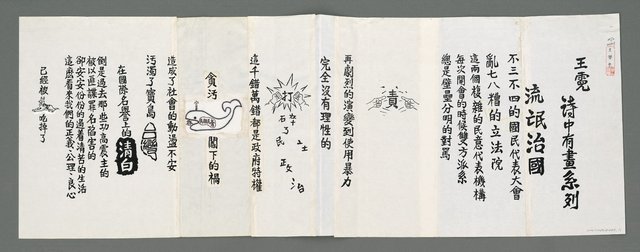 王霓 詩中有畫系列
流氓治國
不三不四的國民代表大會
亂七八糟的立法院
這兩個複雜的民意代表機構
每次開會的時候雙方派系
總是壘壘分明的對罵
責
再劇烈的演變到使用暴力
完全沒有理性的
打
政治
這千錯萬錯都是政府特權
貪污
閣下的禍
造成了社會的動盪不安
污濁了寶島
台灣
在國際名譽上的
清白
倒是過去那些功高震主的
被以匪諜罪名陷害的
卻安安份份的過着清苦的生活
這麼看來我們的正義公理良心
已經被
吃掉了